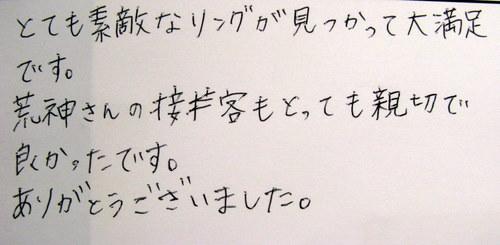 とても素敵なリングが見つかって大満足
です。
荒神さんの接客もとっても親切で
良かったです。
ありがとうございました。